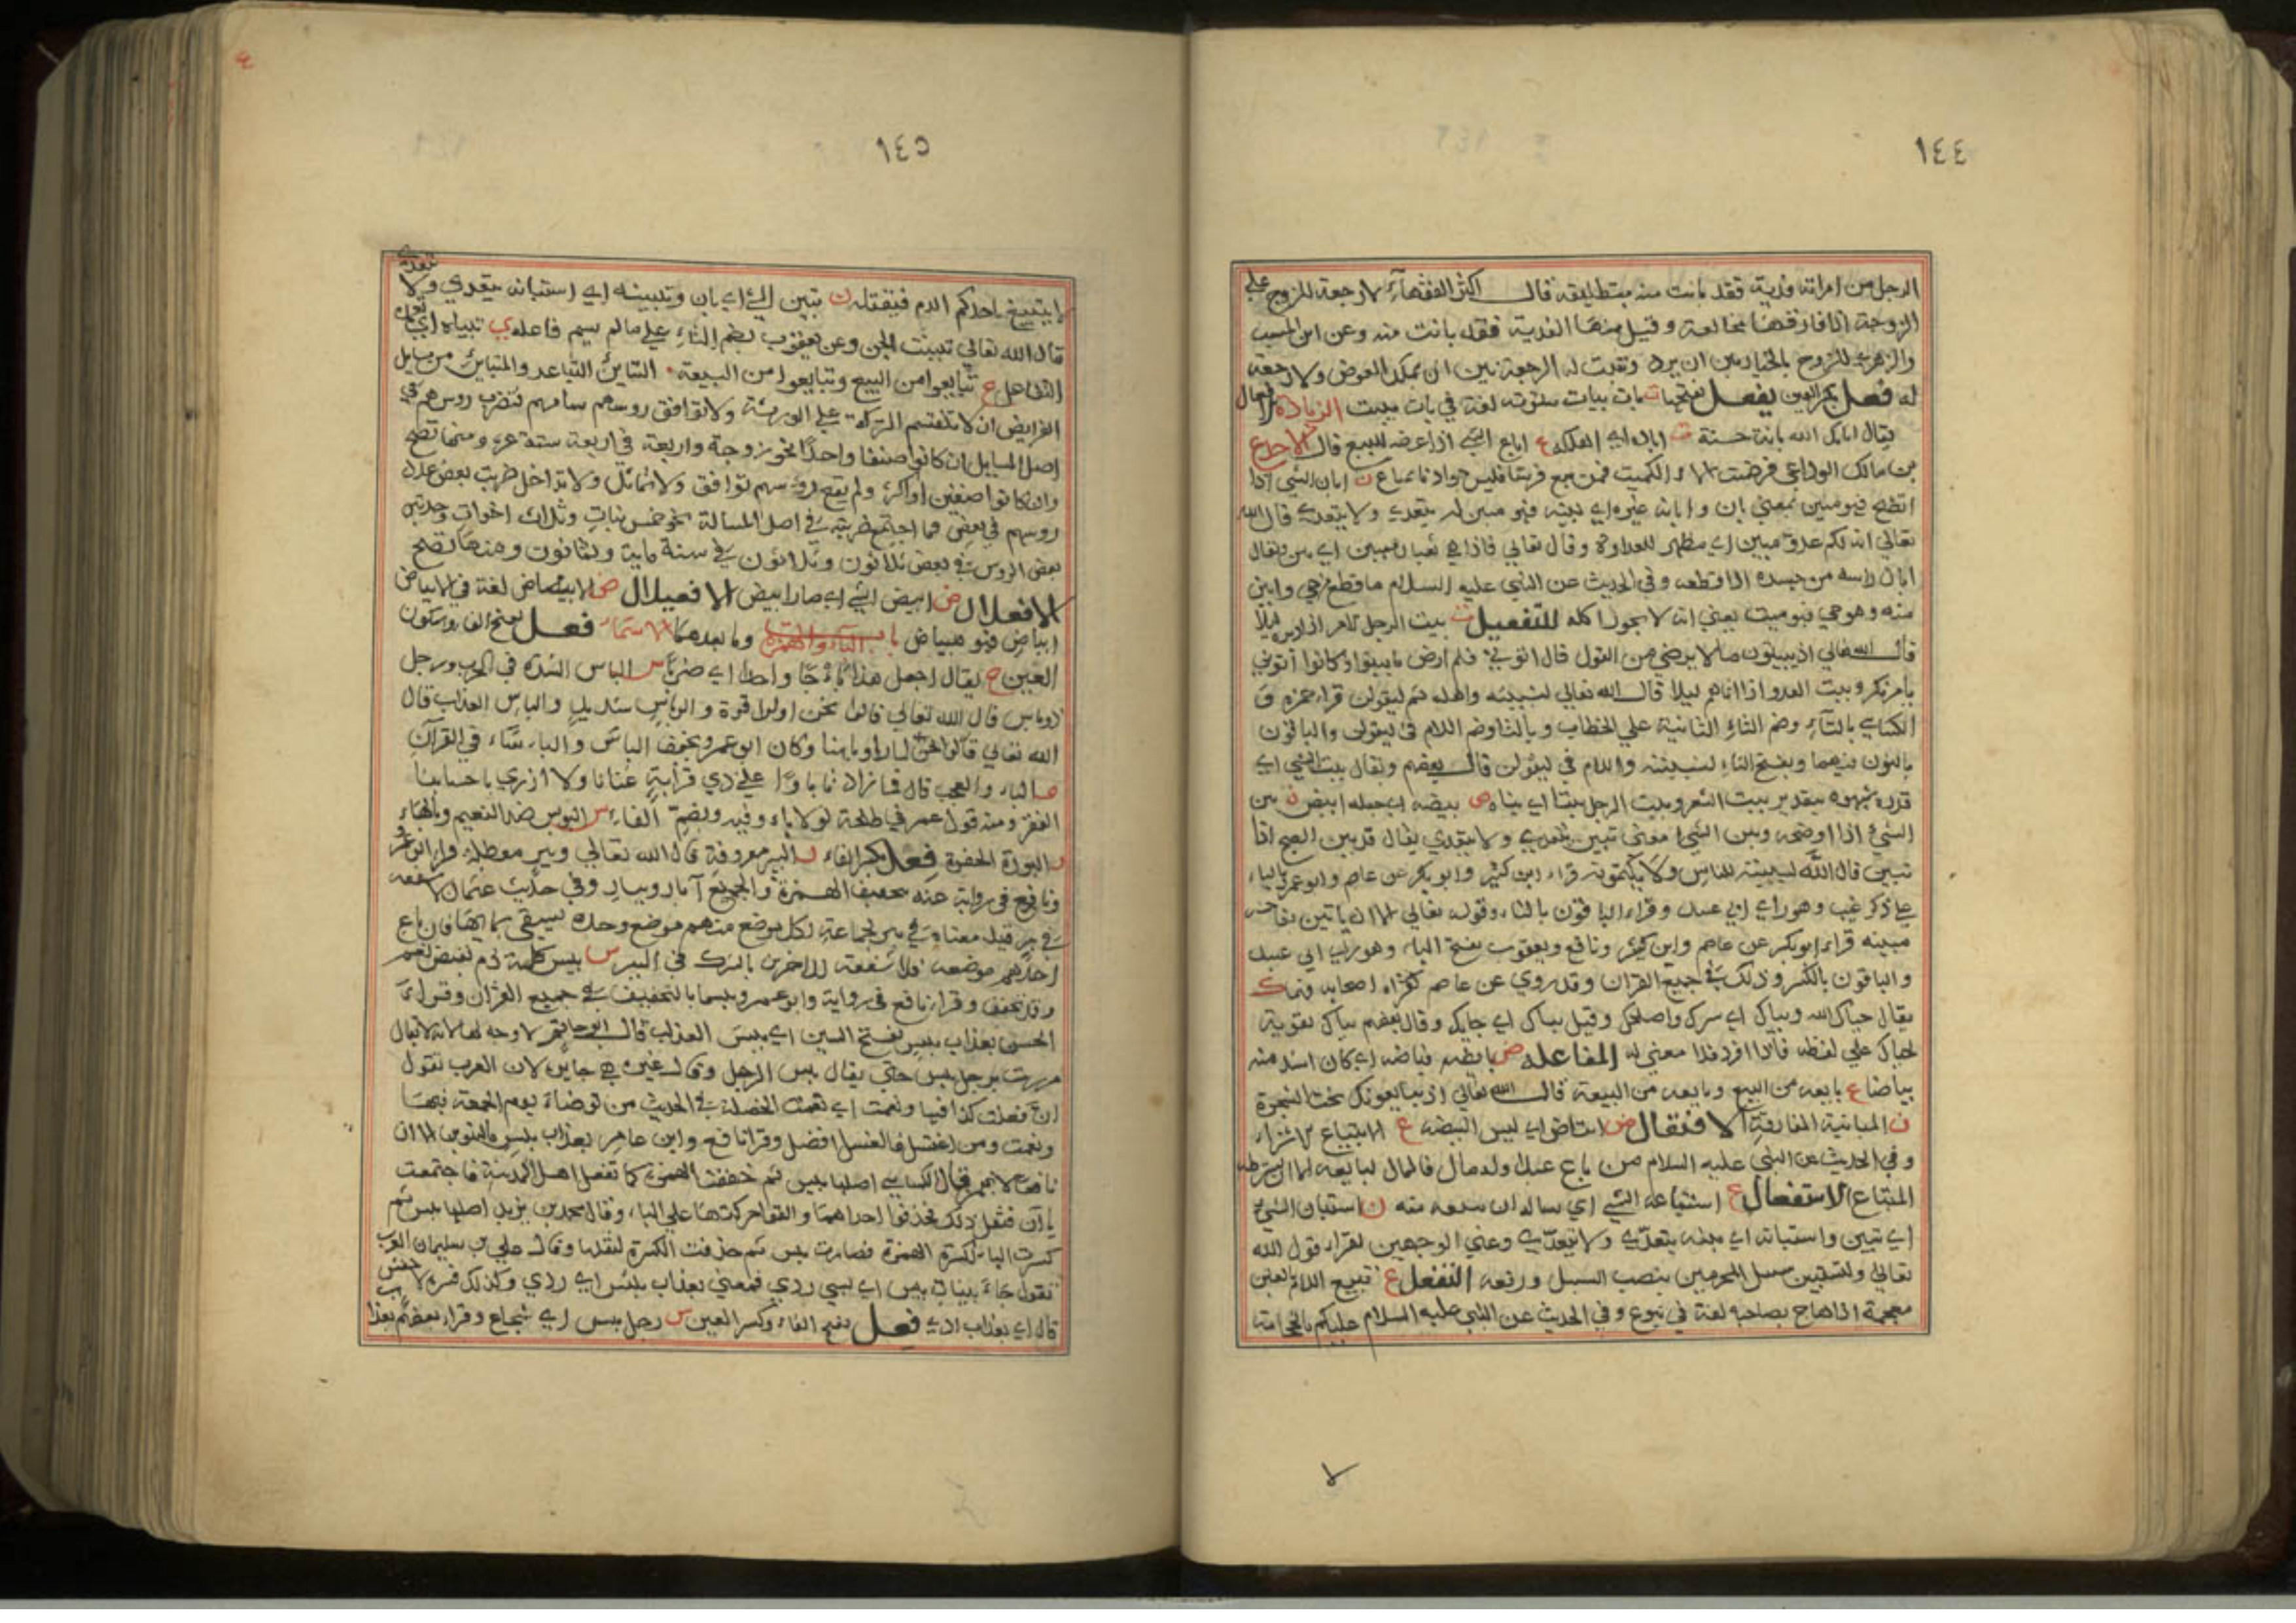 ١٤٤
الرجل من امراته فدية فقد بانت منه بتطليقه قال اكثر الفقهاء لا رجعة للزوج علي
الزوجة اذا فارقها مخالعة وقبل منها الفدية فقد بانت منه وعن ابن المسيب
والزهري للزوج بالخيار بين ان يرد وتثبت له الرجعة وبين ان يمسك العوض ولا رجعة
له فعل بكسر العين يفعل بفتحها ت بات يبات بيتوته لغة في بات يبيت الزيادة الافعال
يقال اباتك الله باتة حسنة اباده اي اهلكه ع اباع الشي اذا عرضه للبيع قال الاجدع
بن مالك الوداعي فرضيت الاء الكميت فمن يبع فرسا فليس جوادنا بمباع ن ابان الشي اذا
اتضح فهو مبين بمعني بان وابانه غيره اي بينه فهو مبين له يتعدى ولا يتعدى قال الله
تعالي انه لكم عدو مبين اي مظهر للعداوة وقال تعالي فاذا هي ثعبان مبين اي بين ويقال
ابان راسه من جسده اذا قطعه وفي الحديث عن النبي عليه السلام ما قطع من حي وابين
منه وهو حي فهو ميت يعني انه لا يجوز اكله التفعيل ت بيت الرجل الامر اذا دبره ليلا
قال الله تعالي اذ يبيتون ما لا يرضي من القول قال اتوني فلم ارض ما بيتوا وكانوا اتوني
بامر نكر وبيت العدو اذا اتاهم ليلا قال الله تعالي لنبيتنه واهله ثم ليقولن قراء حمزه و
الكسائي بالتاء وضم التاء الثانية علي الخطاب وبالتا وضم اللام في ليقولن والباقون
بالنون فيهما وبفتح التاء لنبيتنه واللام في ليقولن قال بعضهم ويقال بيت الشي اي
قدره شبهوه بتقدير بيت الشعر وبيت الرجل بيتا اي بناه ض بيضه اي جعله ابيض ن بين
الشي اذا اوضحه وبين الشي بمعني تبين يتعدى ولا يتعدى يقال قد بين الصبح اذا
تبين قال الله لتبيننه للناس ولا يكتمونه قراء ابن كثير وابو بكر عن عاصم وابو عمر بالياء
علي ذكر غيب وهو راي ابي عبيد وقراء الباقون بالتاء وقوله تعالي الا ان ياتين بفاحشه
مبينه قراء ابو بكر عن عاصم وابن كثير ونافع ويعقوب بفتح الياء وهو راي ابي عبيد
والباقون بالكسر وذلك في جميع القران وقد روي عن عاصم كقراه اصحابه
يقال حياك الله وبياك اي سرك واصلحك وقيل بياك اي جابك وقال بعضهم بياك تقوية
لحياك علي لفظه فاذا افرد فلا معني له المفاعله ض بايضه فباضه اي كان اشد منه
بياضا ع بايعه من البيع وبايعه من البيعة قال الله تعالي اذ يبايعونك تحت الشجرة
ن المباينة المفارقة الافتعال ض ابتاض اي لبس البيضه ع الابتياع الاشتراء
وفي الحديث عن النبي عليه السلام من باع عبدا وله مال فالمال لبايعه الا ان يشترطه
المبتاع الاستفعال ع استباعه الشي اي ساله ان يبيعه منه ن استبان الشي
اي تبين واستبانه اي بينه يتعدي ولا يتعدي وعلي الوجهين يقراء قول الله
تعالي ولتستبين سبيل المجرمين بنصب السبيل ورفعه التفعل ع تبيع الدم بالغين
معجمة اذا هاج بصاحبه لغة في تبوع وفي الحديث عن النبي عليه السلام عليكم بالحجامة
١٤٥
لا يتبيغ باحدكم الدم فيقتله ن تبين الشي اي بان وتبينه اي استبانه يتعدي ولا يتعدى
قال الله تعالي تبينت الجن وعن يعقوب بضم التاء علي ما لم يسم فاعله ي تبياه اي تعمده
التفاعل ع تبايعوا من البيع وتبايعوا من البيعة التباين التباعد والمتباين من مسايل
الفرايض ان لا تنقسم التركة علي الورثة ولا توافق روسهم سهامهم فتضرب روسهم في
اصل المسايل ان كانوا صنفا واحدا نحو زوجة واربعة في اربعة ستة عشر ومنها تصح
وان كانوا صنفين او اكثر ولم يقع لروسهم توافق ولا تماثل ولا تداخل ضربت بعض عدد
روسهم في بعض فما اجتمع ضربته في اصل المسالة نحو خمس بنات وثلاث اخوات وجدتين
بعض الروس في بعض ثلاثون وثلاثون في ستة ماية وثمانون ومنها تصح
الافعلال ض ابيض الشي اي صار ابيض الافعيلال ض الابيضاض لغة في الابياض
ابياض فهو مبياض باب الباء والهمزة وما بعدهما الاسماء فعل بفتح الفا وسكون
العين ج يقال اجعل هذا باجا واحدا اي ضربا س الباس الشدة في الحرب ورجل
ذو باس قال الله تعالي قالوا نحن اولوا قوة واولوا باس شديد والباس العذاب قال
الله تعالي فلما راوا باسنا وكان ابو عمر ويخفف الباس والباساء في القران
الباء والعجب قال فما زادنا باوا علي ذي قرابة غنانا ولا ازري باحسابنا
الفقر ومنه قول عمر في طلحة لولا باو فيه وبضم الفاء س البوس ضد النعيم وبالهاء
البورة الحفرة فعل بكسر الفاء البير معروفة قال الله تعالي وبير معطلة قراء ابو عمر
ونافع في رواية عنه بتخفيف الهمزة والجميع آبار وبيار وفي حديث عثمان لا شفعه
في بير قيل معناه في بير لجماعة لكل موضع منهم موضع وحده يسقي بمايها فان باع
احدهم موضعه فلا شفعة للاخرين بالشرك في البير س بيس كلمة ذم نقيض نعم
وقد تخفف وقرا نافع في رواية وابو عمرو بيسما بالتخفيف في جميع القران وقراء
الحسن بعذاب بيس بفتح السين اي بيس العذاب قال ابو حاتم لا وجه لها لانه لا يقال
مررت برجل بيس حتي يقال بيس الرجل وقال غيره هي جايزة لان العرب تقول
ان فعلت كذا فبها ونعمت اي نعمت الخصلة في الحديث من توضا يوم الجمعة فبها
ونعمت ومن اغتسل فالغسل افضل وقرا نافع وابن عامر بعذاب بيس بالتنوين الا ان
نافعا لا يهمز قال الكسائي اصلها بييس ثم خففت الهمزة كما تفعل اهل المدينة فاجتمعت
ياان فثقل ذلك فحذفوا احداهما والقوا حركتها علي الباء وقال محمد بن يزيد اصلها بيس ثم
كسرت الباء لكسرة الهمزة فصارت بيس ثم حذفت الكسرة لثقلها وقال علي بن سليمان العرب
تقول جاء ببنات بيس اي بشي ردي فمعني بعذاب بيس اي ردي وكذلك فسره الاخفش
قال اي بعذاب ردي فعل بفتح الفاء وكسر العين س رجل بيس اي شجاع وقراء بعضهم بعذاب